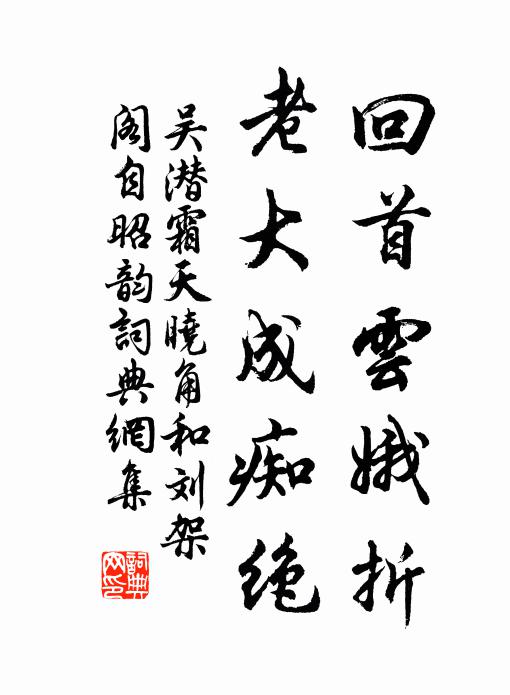 回首雲娥折
老大成痴绝
吴潜霜天曉角和刘架
阁自昭韵詞典網集
詞典网印